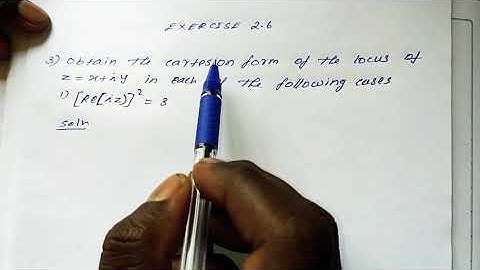 EXERCISE 2.6
3) Obtain the cartesion form of the locus of
z = x+iy in each of the following cases
i) [Re[iz)]² = 3
soln